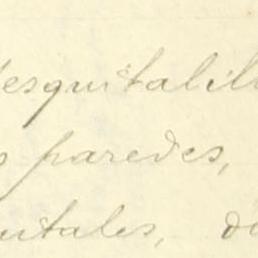 esquitalill
s paredes,
utales, du